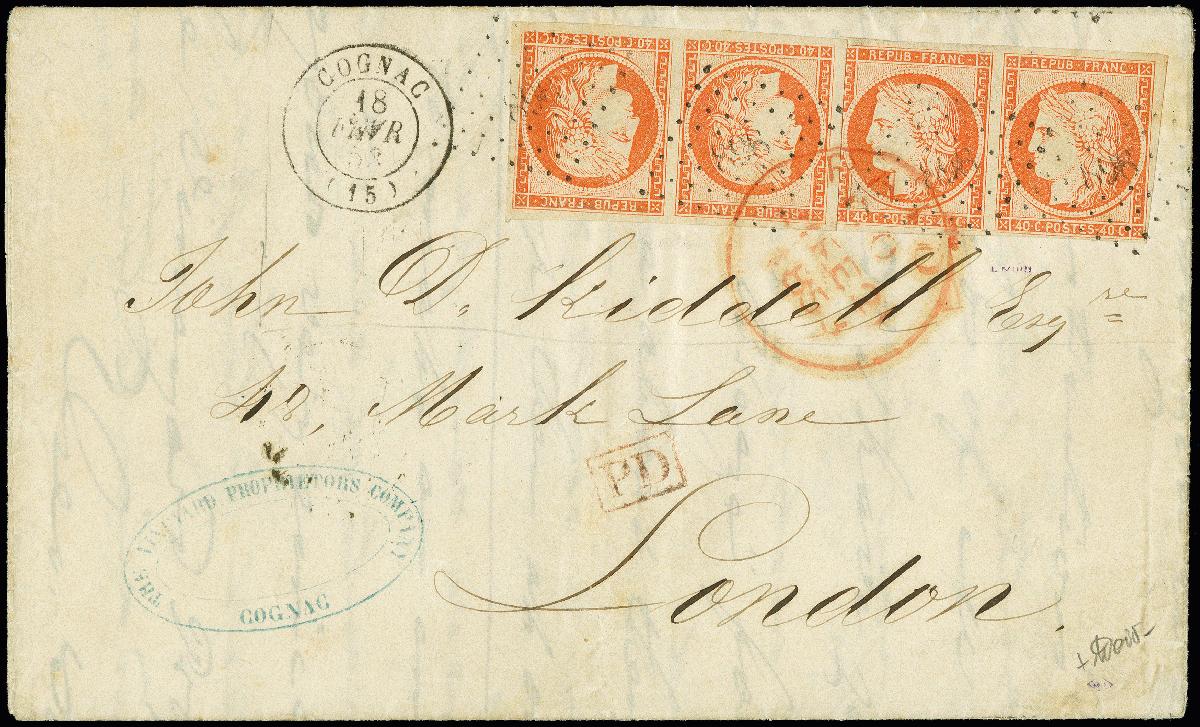 COGNAC
18
FEVR
(15)
40·C·POSTES·40·C
REPUB·FRANC
40·C·POSTES·40·C
REPUB·FRANC
REPUB·FRANC·
40·C·POSTES·40·C
REPUB·FRANC·
40·C·POSTES·40·C
John D. Kiddell Esqre
42, Mark Lane
London.
PD
PROPRIETORS COMPANY
COGNAC